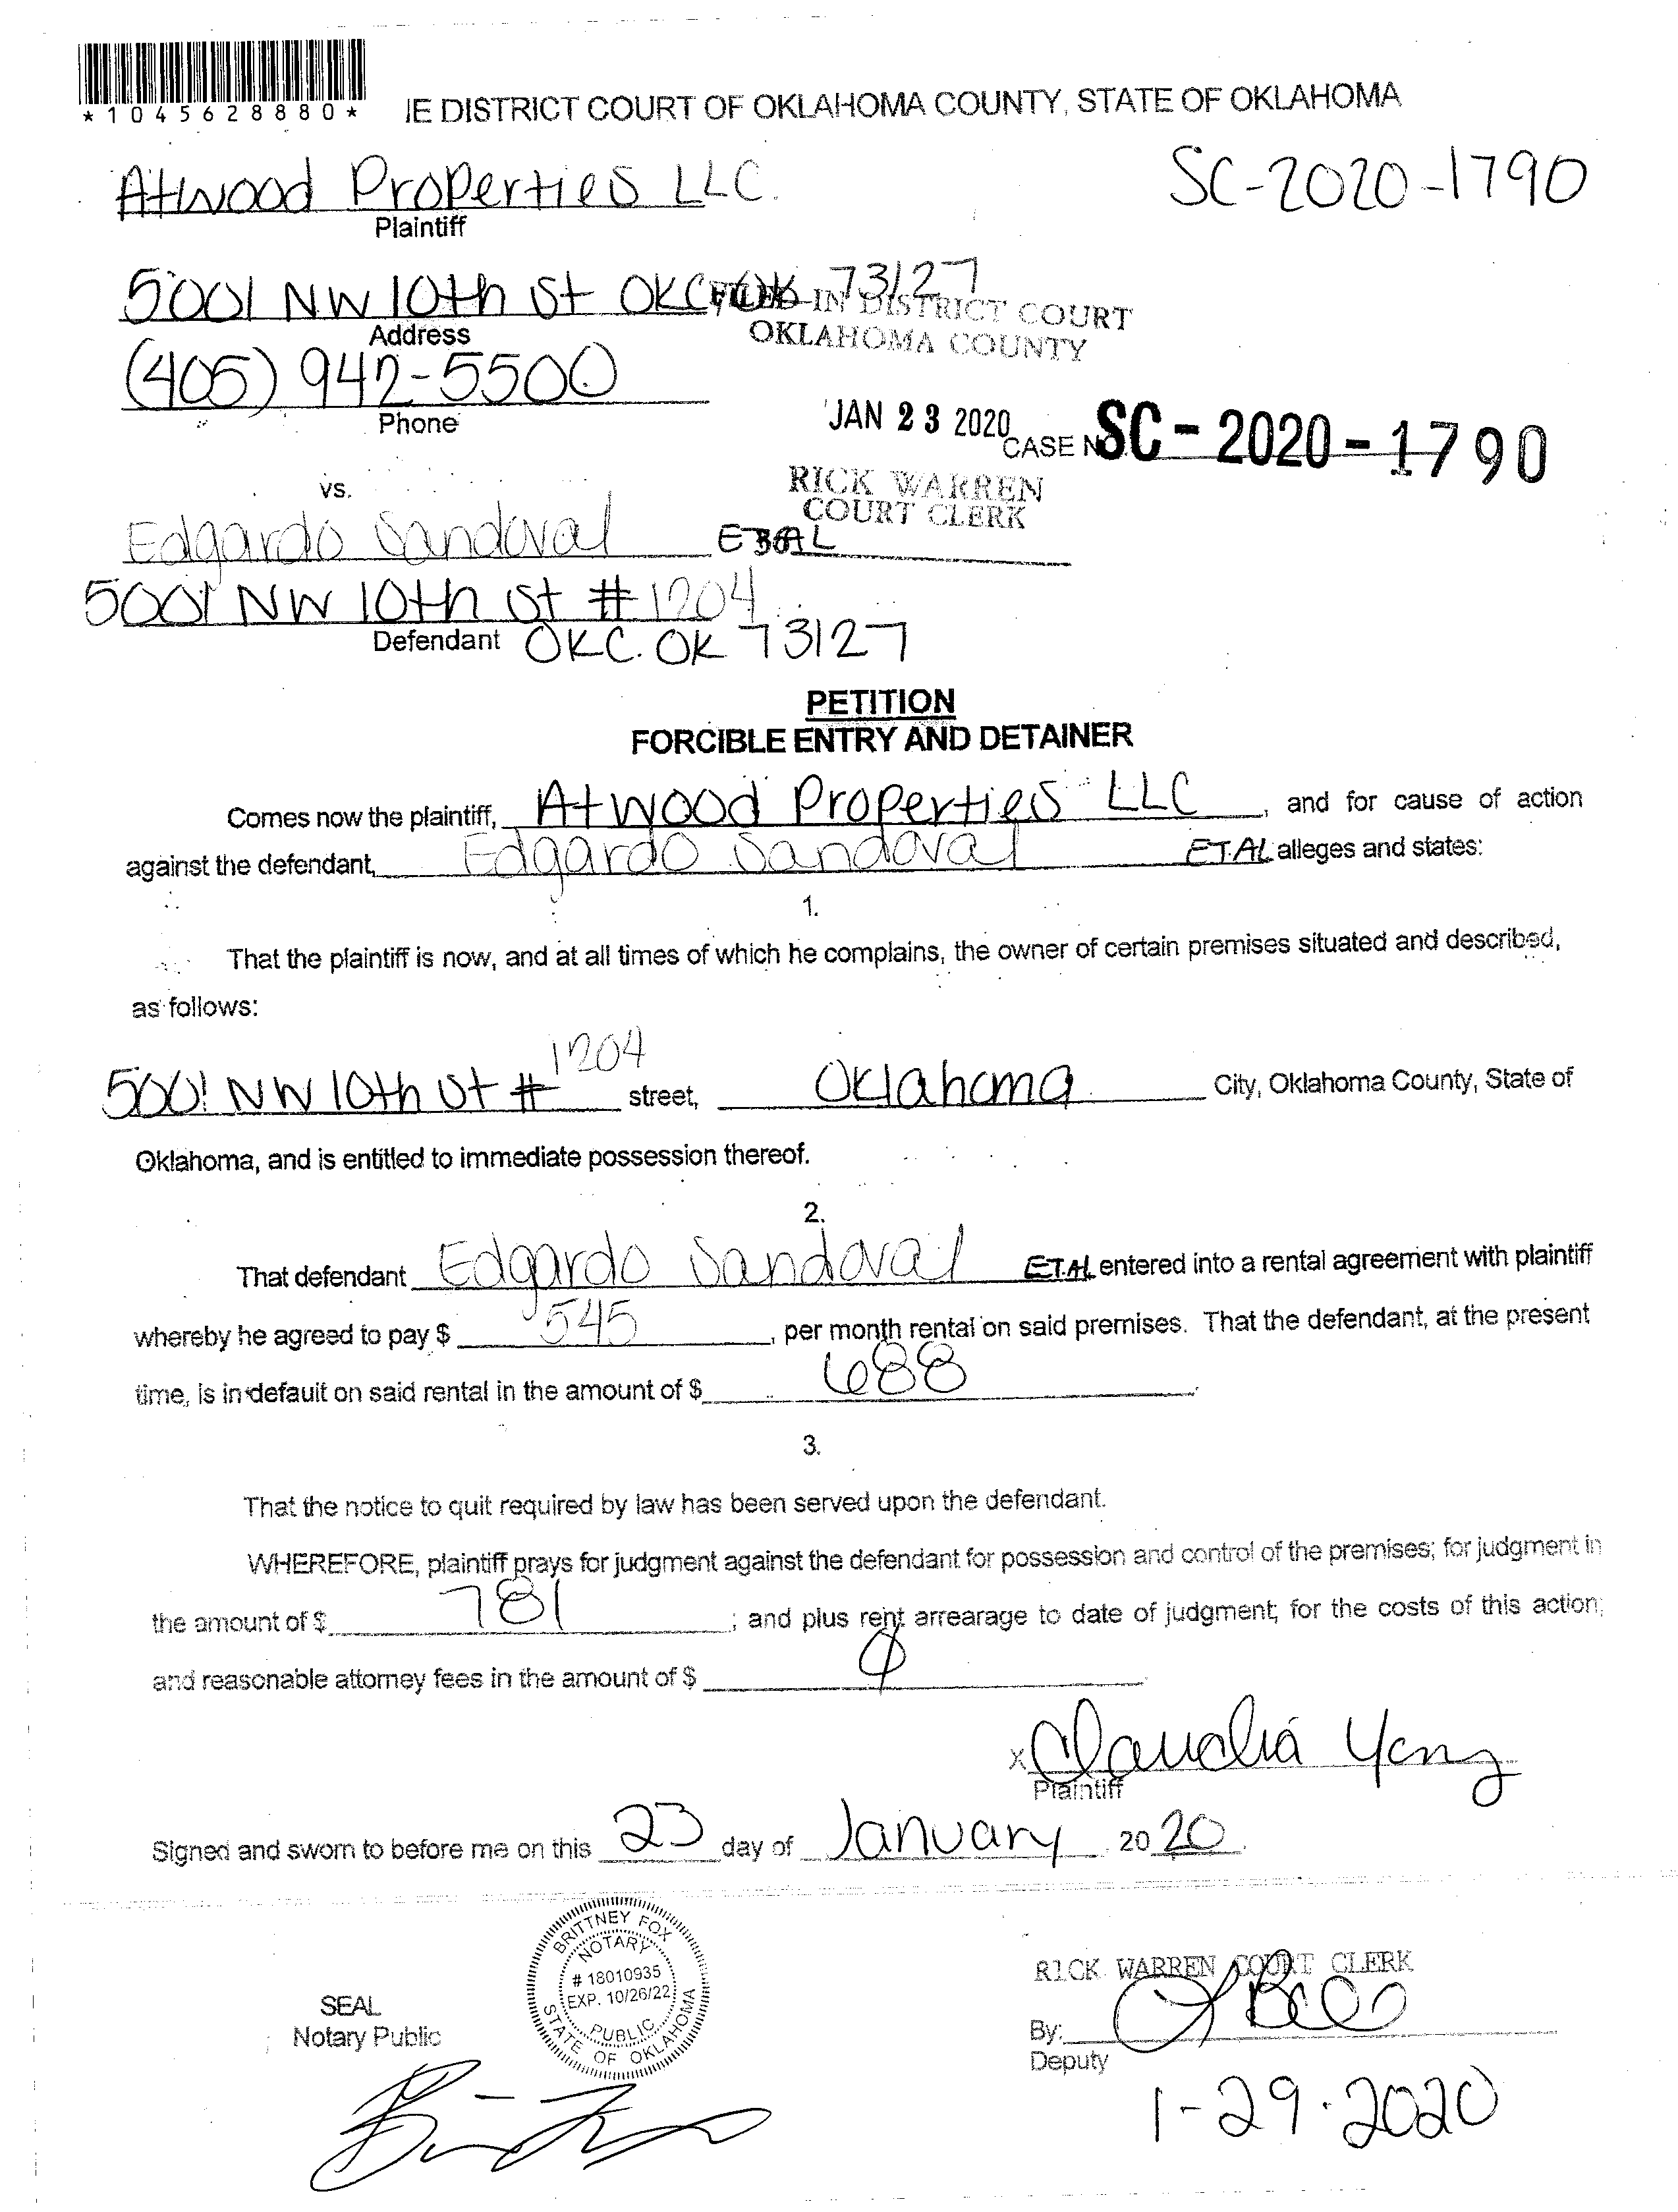 *1045628880*
IE DISTRICT COURT OF OKLAHOMA COUNTY, STATE OF OKLAHOMA
Atwood Properties LLC.
SC-2020-1790
Plaintiff
5001 NW 10th St OKC, OK 73127
FILED IN DISTRICT COURT
OKLAHOMA COUNTY
Address
(405) 942-5500
Phone
JAN 23 2020
CASE No. SC-2020-1790
RICK WARREN
COURT CLERK
vs.
Edgardo Sandoval ETAL
5001 NW 10th St #1204
Defendant OKC. OK 73127
PETITION
FORCIBLE ENTRY AND DETAINER
Comes now the plaintiff, Atwood Properties LLC, and for cause of action
against the defendant, Edgardo Sandoval ET.AL alleges and states:
1.
That the plaintiff is now, and at all times of which he complains, the owner of certain premises situated and described,
as follows:
5001 NW 10th St # 1204 street, Oklahoma City, Oklahoma County, State of
Oklahoma, and is entitled to immediate possession thereof.
2.
That defendant Edgardo Sandoval ET.AL entered into a rental agreement with plaintiff
whereby he agreed to pay $ 545, per month rental on said premises. That the defendant, at the present
time, is in default on said rental in the amount of $ 688.
3.
That the notice to quit required by law has been served upon the defendant.
WHEREFORE, plaintiff prays for judgment against the defendant for possession and control of the premises; for judgment in
the amount of $ 781; and plus rent arrearage to date of judgment; for the costs of this action;
and reasonable attorney fees in the amount of $ 0.
x Claudia Yong
Plaintiff
Signed and sworn to before me on this 23 day of January 2020.
BRITTNEY FOX
NOTARY
# 18010935
EXP. 10/26/22
PUBLIC
STATE OF OKLAHOMA
SEAL
Notary Public
RICK WARREN COURT CLERK
By:
Deputy
1-29-2020